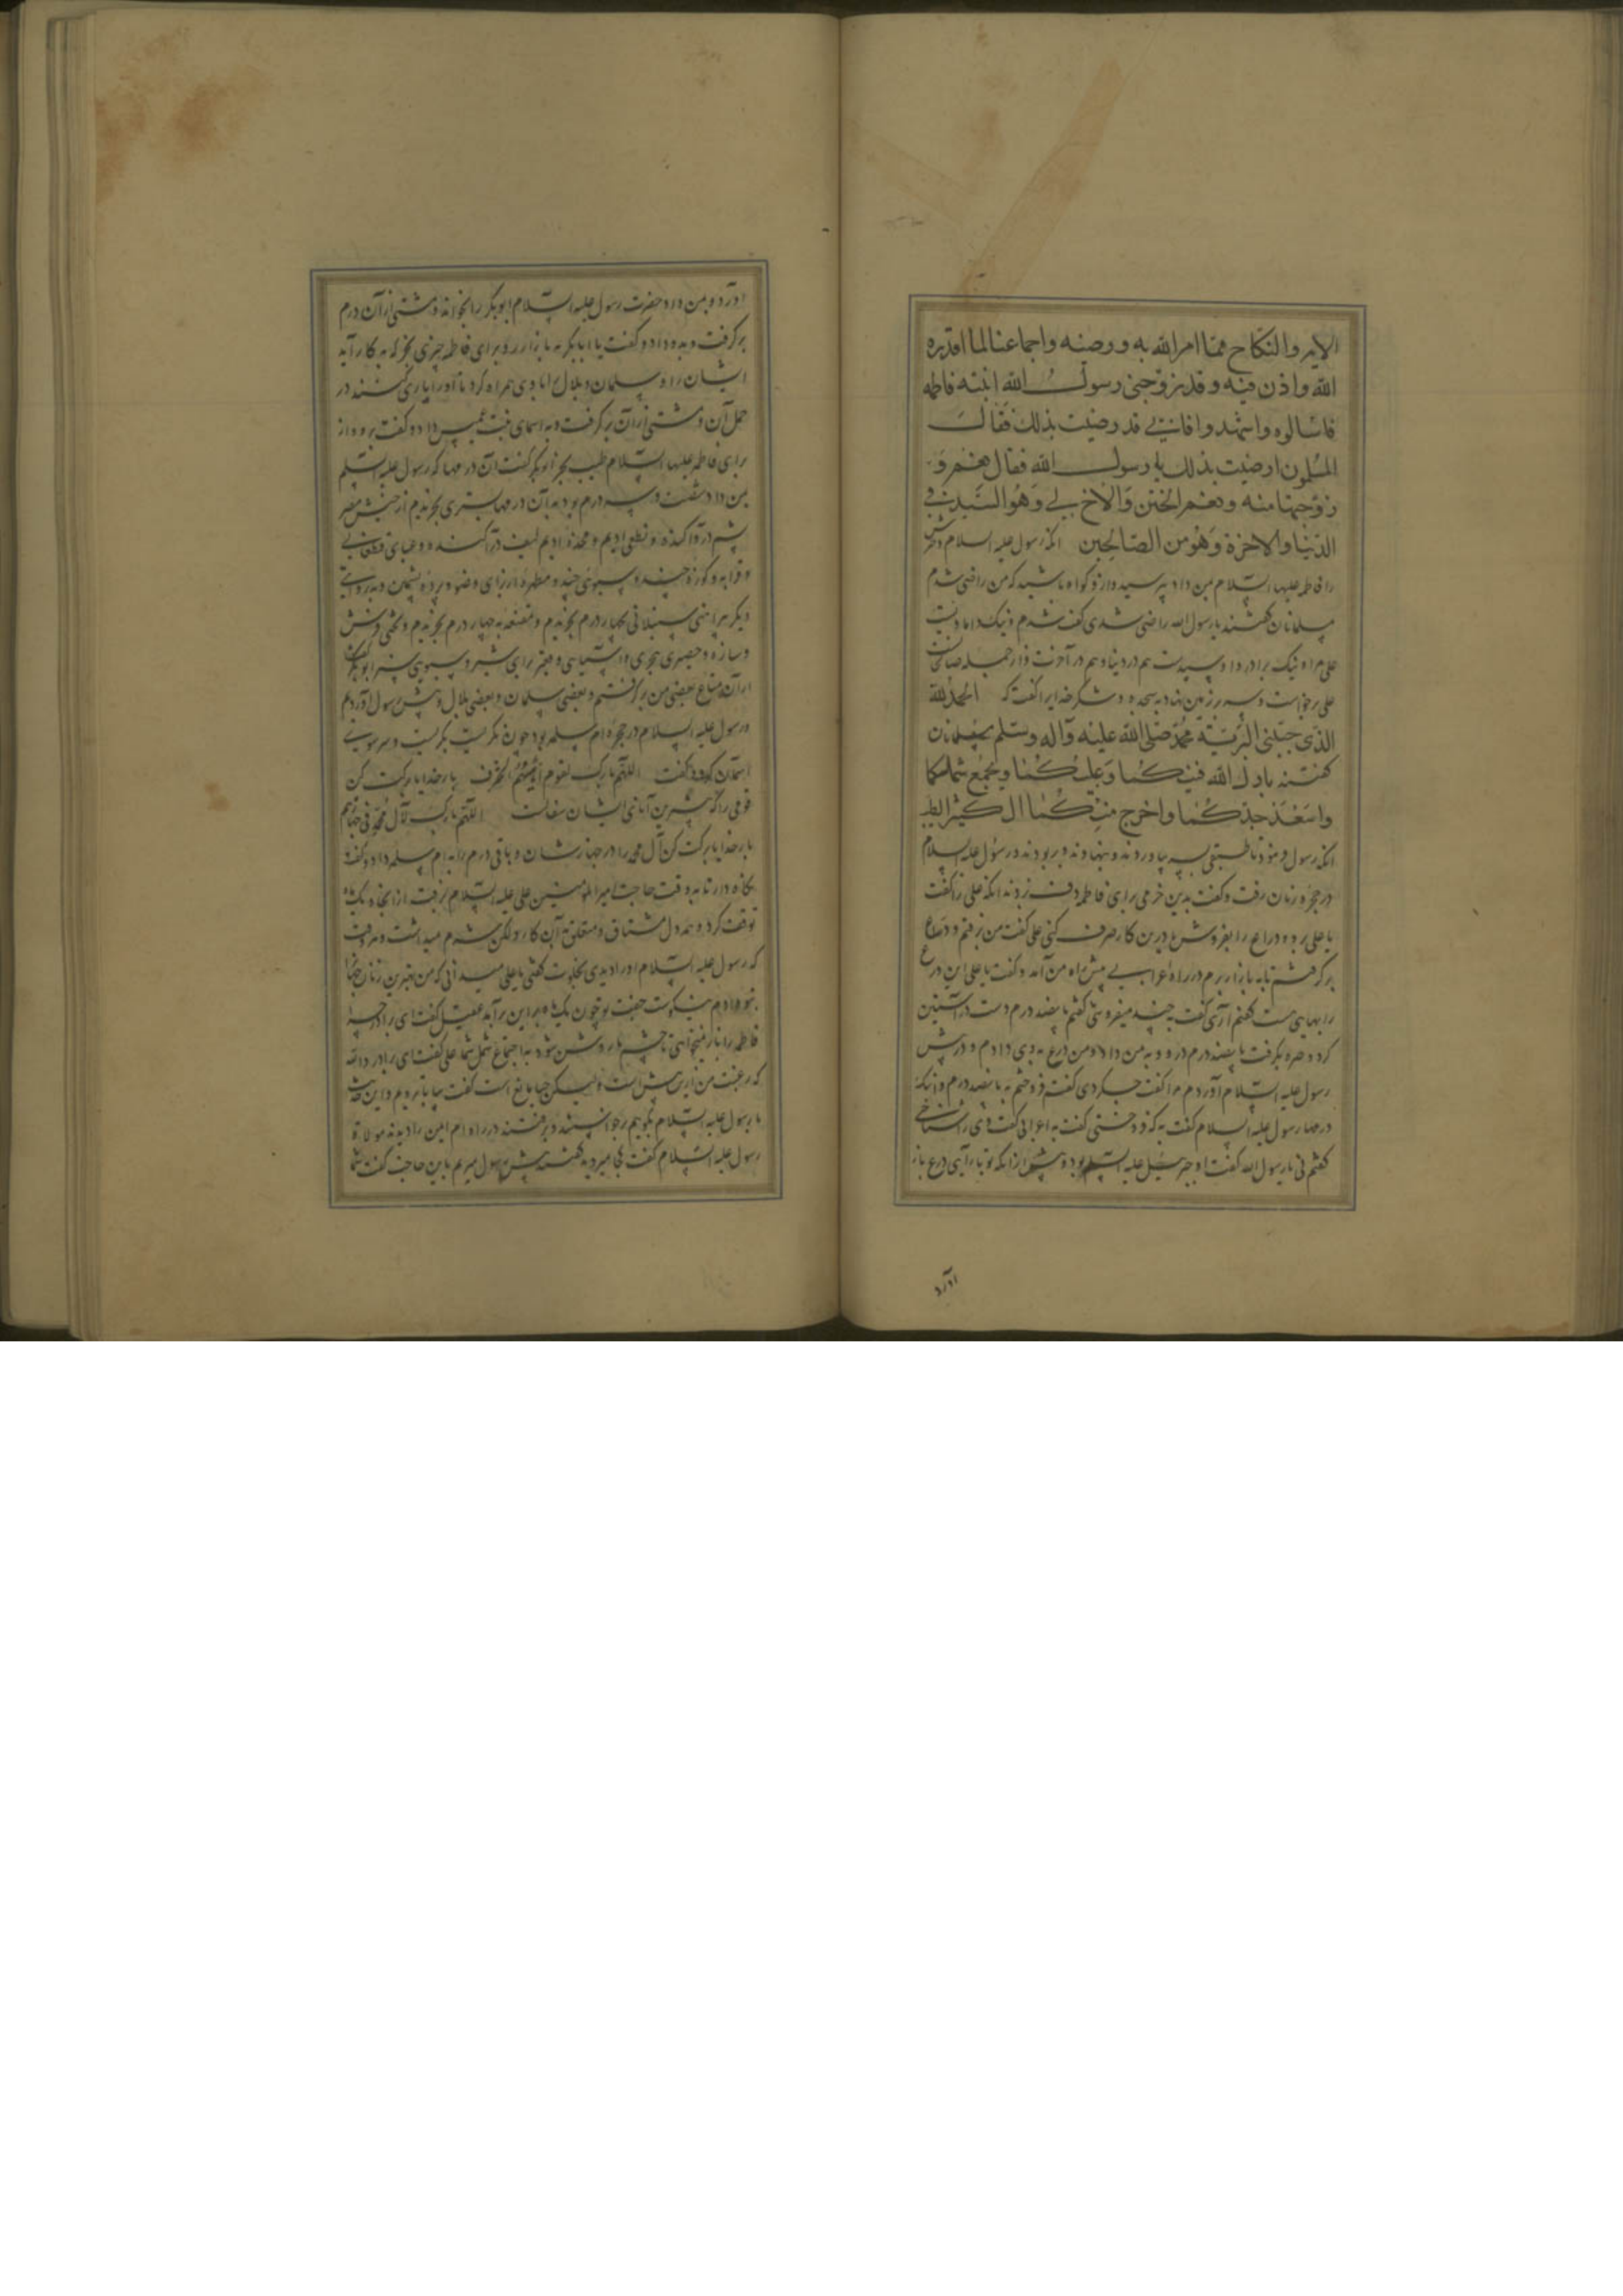 الامر والنکاح مما امر الله به و رضیه واجتماعنا لما قدره
الله واذن فیه وقد زوجنی رسول الله ابنته فاطمه
فاسالوه واشهدوا فانی قد رضیت بذلک فقالــ
المسلمون ارضیت بذلک یا رسول الله فقال نعم و
زوجتها منه ونعم الختن والاخ لی وهو السید فی
الدنیا والاخرة وهو من الصالحین آنگه رسول علیه السلام
را فاطمه علیها السلام بمن داد بپرسید و ازو گواه باشید که من راضی شدم
مسلمانان گفتند یا رسول الله راضی شدی گفت شدم و نیک دامادیست
علی مرا و نیک برادر و سیدست هم در دنیا و هم در آخرت و از جمله صالحین
علی برخواست و سر بر زمین نهاد به سجده و شکر خدایرا گفت که الحمد لله
الذی حببنی البریة محمد صلی الله علیه وآله وسلم مسلمانان
گفتند بارک الله فیکما وعلیکما وجمع شملکما
واسعد جدکما واخرج منکما الکثیر الطیب
آنگه رسول فرمود تا طبقی بسر بیاوردند و بنهادند و بربودند و رسول علیه السلام
در حجره زنان رفت و گفت بدین خرمی برای فاطمه دف زدند آنگه علی را گفت
یا علی برو و دراع را بفروش تا درین کار صرف کنی علی گفت من برفتم و دراع
برگرفتم تا به بازار برم در راه اعرابی پیش راه من آمد و گفت یا علی این درع
را بهایی هست گفتم آری گفت به چند میفروشی گفتم پانصد درم دست در آستین
کرد و صره برگرفت پانصد درم درو و به من داد و من درع به وی دادم و در پیش
رسول علیه السلام آوردم مرا گفت چه کردی گفتم فروختم به پانصد درم و اینک
درمها رسول علیه السلام گفت به که فروختی گفتم به اعرابی گفت وی را شناختی
گفتم نی یا رسول الله گفت او جبرئیل علیه السلام بود و پیش از آنکه تو باز آیی درع باز
اورد
آورد و بمن داد حضرت رسول علیه السلام ابوبکر را بخواند و مشتی از آن درم
برگرفت و به وی داد و گفت یا ابابکر به بازار رو برای فاطمه چیزی بخر که به کار آید
ایشان را و سلمان و بلال را با وی همراه کرد تا او را یاری کنند در
حمل آن و مشتی از آن برگرفت و به اسمای بنت عمیس داد و گفت برو و از
برای فاطمه علیها السلام طیب بخر ابوبکر گفت آن درمها که رسول علیه السلام
بمن داد شصت و سه درم بود به آن درمها بستری بخریدم از خیش مصر
پشم درو آکنده و نطعی ادیم و مخده ادیم لیف درو آکنده و عبای قطوانی
و قرابه و کوزه چند و سبوی چند و مطهره از برای وضو و پرده پشمین
دیگر پیراهنی سنبلانی بچهار درم بخریدم و مقنعه به چهار درم بخریدم و
و حصیری هجری و آسیایی و برای شیر و سبویی سبز ابوبکر گفت
از آن متاع بعضی من برگرفتم و بعضی سلمان و بعضی بلال و پیش رسول آوردیم
و رسول علیه السلام در حجره ام سلمه بود چون نگریست بگریست و سر سوی
آسمان کرد و گفت اللهم بارک لقوم انیتهم الخزف بار خدایا برکت کن
قومی را که بهترین آنای ایشان سفالست اللهم بارک لآل محمد فی جهازهم
بار خدایا برکت کن آل محمد را در جهازشان و باقی درم را به ام سلمه داد و گفت
نگاه دار تا به وقت حاجت امیر المؤمنین علی علیه السلام برفت از آنجا و یک ماه
توقف کرد و همه دل مشتاق و متعلق به آن کار و لیکن شرم میداشت و هر وقت
که رسول علیه السلام او را دیدی بخلوت گفتی یا علی میدانی که من بهترین زنان جهان
به تو دادم نیکوست جفت تو چون یک ماه بر این برآمد عقیل گفت ای برادر چرا
فاطمه را باز نمیخواهی تا چشم ما روشن شود به اجتماع شمل شما علی گفت ای برادر والله
که رغبت من ازین بیش است ولیکن حیا مانع است گفت بیا تا برویم و این حدیث
با رسول علیه السلام بگوییم برخواستند و برفتند در راه ام ایمن را دیدند مولاة
رسول علیه السلام گفت کجا میروید گفتند پیش رسول میرویم باین حاجت گفت شما